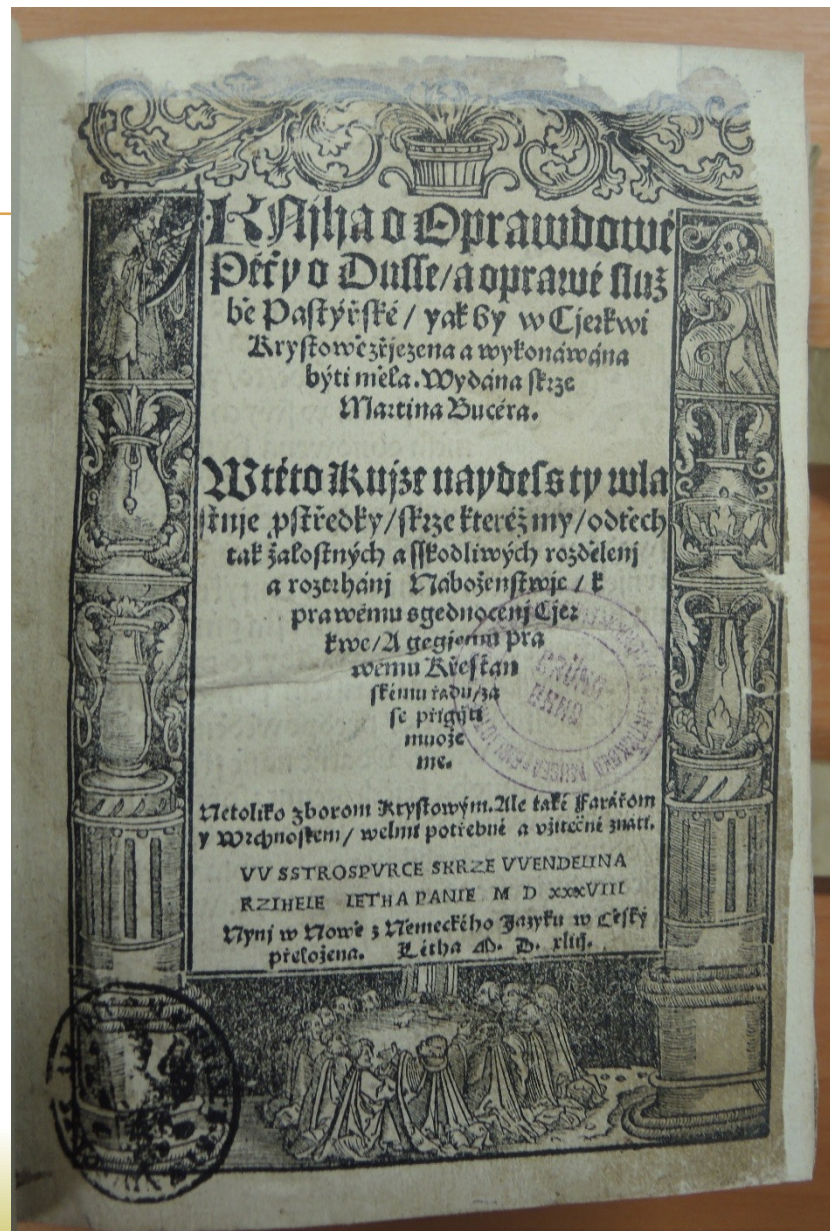 KNijha o Oprawdowé
Péčy o Dusse/a oprawé služ
bě Pastýřské / yak by w Cjerkwi
Krystowě zřjezena a wykonáwána
býti měla. Wydána skrze
Martina Bucéra.
W této Knjze naydeš ty wla
stnje pstředky/skrze kteréž my/odtěch
tak žalostných a sskodliwých rozdělenj
a roztrhánj Náboženstwje / k
prawému sgednocenj Cjer
kwe/A gegjemu pra
wému Křestian
skému řadu/za
se přigýti
muože
me.
Netoliko zborom Krystowým. Ale také Farářom
y Wrchnostem/ welmi potřebné a vžitečné znáti.
VV SSTROSPVRCE SKRZE VVENDELINA
RZIHELE LETHA PANIE M D XXXVIII
Nynj w Nowě z Německého Jazyku w Český
přeložena. Létha M. D. xliij.